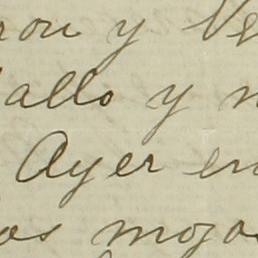 ron y Ve
allo y n
Ayer en
os mozos